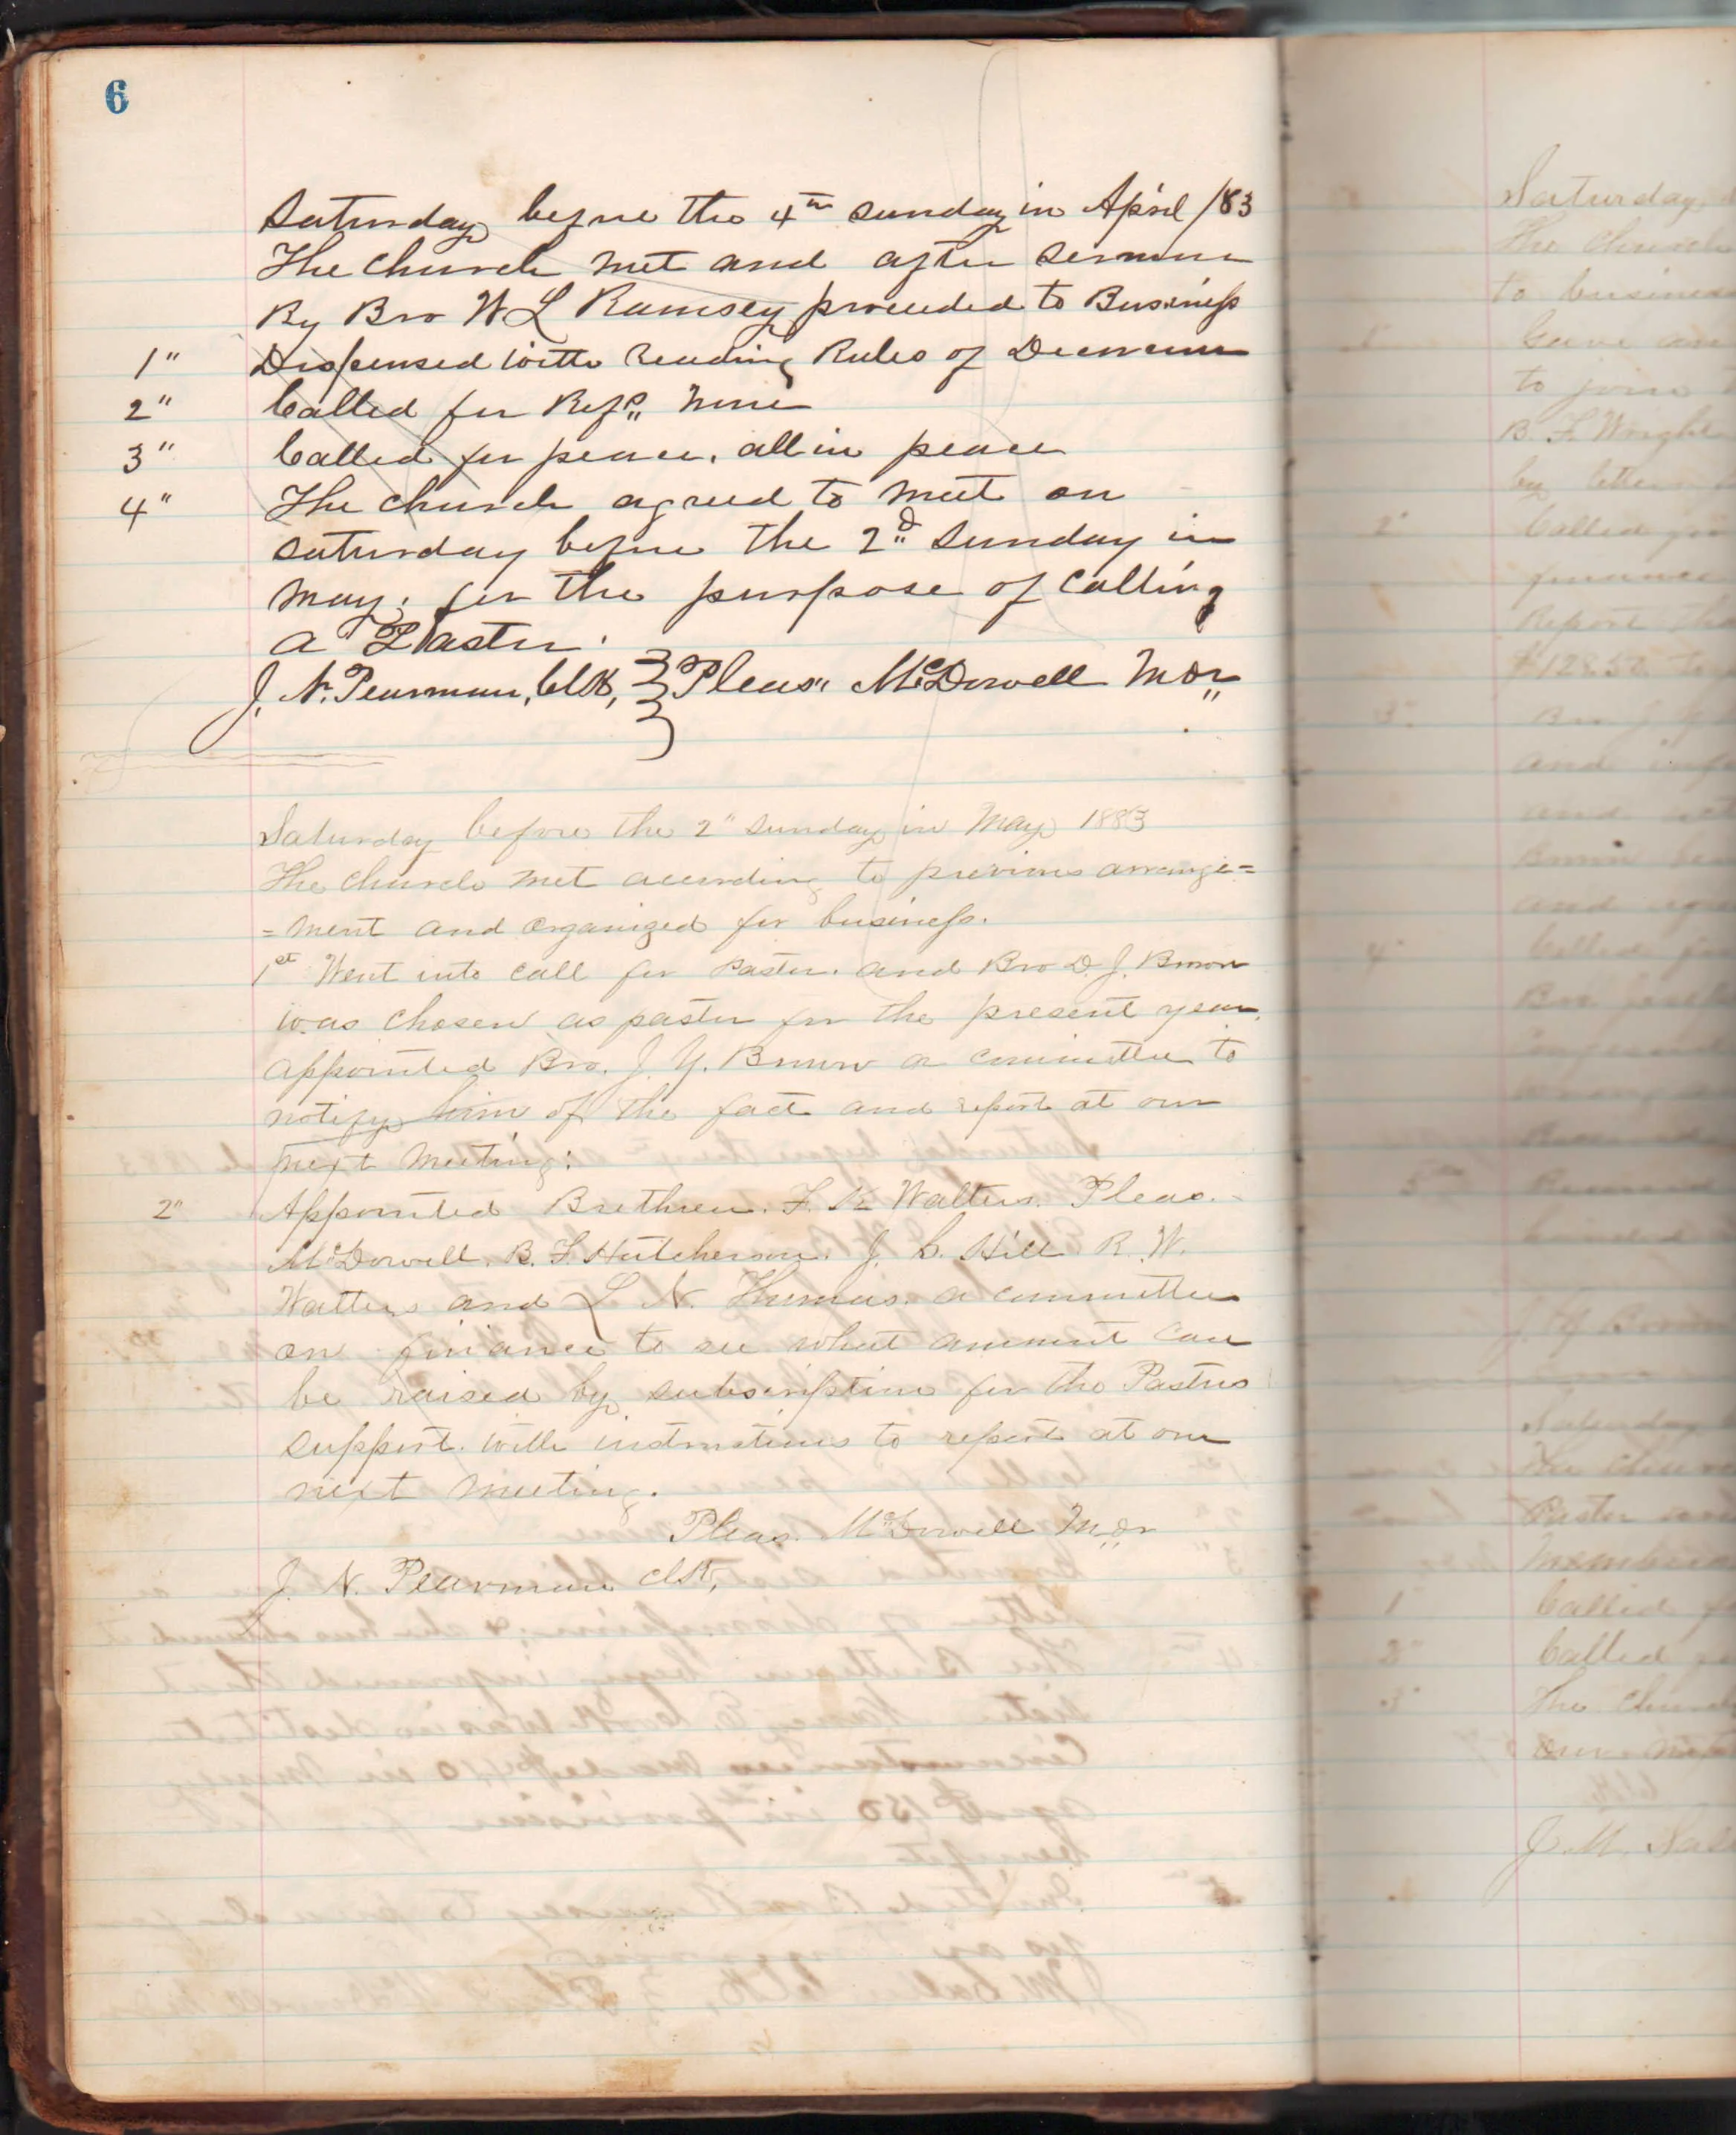 6
Saturday before the 4th Sunday in April /83
The church met and after sermon
By Bro W L Ramsey proceeded to Business
1" Dispensed with reading Rules of Decorum
2" Called for Refs. None
3" Called for peace. all in peace
4" The church agreed to meet on
saturday before the 2d Sunday in
May, for the purpose of calling
a Pastor.
J. N. Pearman, Clk, Pleas. McDowell Mor
Saturday before the 2" Sunday in May 1883
The church met according to previous arrange=
=ment and organized for business.
1st Went into call for Pastor. and Bro D. J. Brown
was chosen as pastor for the present year,
appointed Bro. J. Y. Brown a committee to
notify him of the fact and report at our
next meeting.
2" Appointed Brethren. F. K. Walters. Pleas.
McDowell. B. F. Hutcherson. J. C. Hill R. W.
Watters and L N. Thomas. a committee
on finance to see what amount can
be raised by subscription for the Pastors
support. with instructions to report at our
next meeting.
Pleas. McDowell Mor
J. N. Pearman clk,
Saturday
The church
to business
1"
to join
B. F. Wright
by letter
2" Called for
finance
Report the
$128.50
3"
and
and
and
4" Called for
Bro
5th
J. Y. Brown
Saturday
The church
Pastor
members
1 Called f
2" Called
3" The church
our
Clk